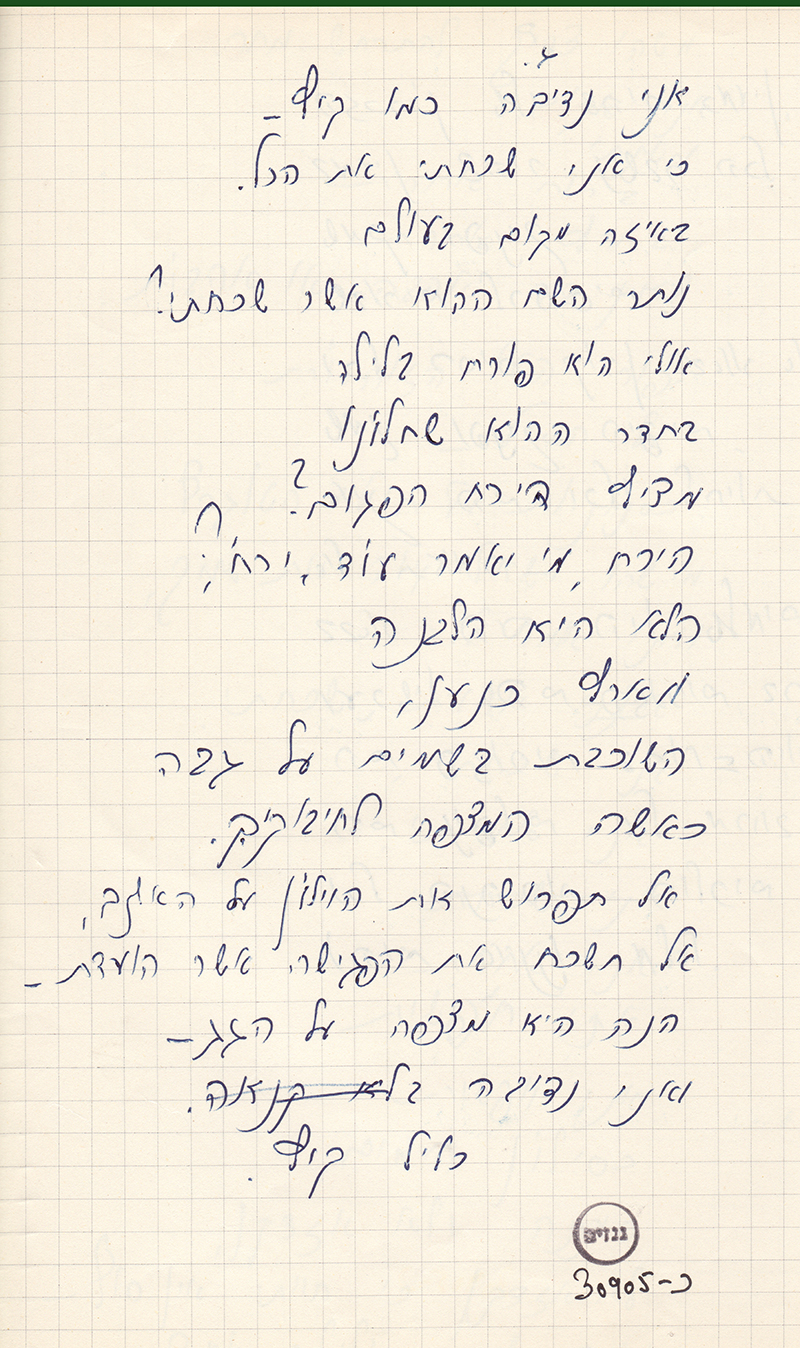 ג.
אני נדיבה כמו קיץ –
כי אני שכחתי את הכל.
באיזה מקום בעולם
נותר השם ההוא אשר שכחתי?
אולי הוא פורח בלילה
בחדר ההוא שחלונו
מציף הירח הפגום?
הירח, מי יאמר עוד "ירח"?
הלא היא הלבנה
מארץ כנען,
השוכבת בשמים על גבה
כאשה המצפה לחיבוקים.
אל תפרוש את הוילון על האשנב,
אל תשכח את הפגישה אשר הועדת –
הנה היא מצפה על הגג –
ואני נדיבה בלא קנאה.
כליל קיץ.
גנזים
כ-30905